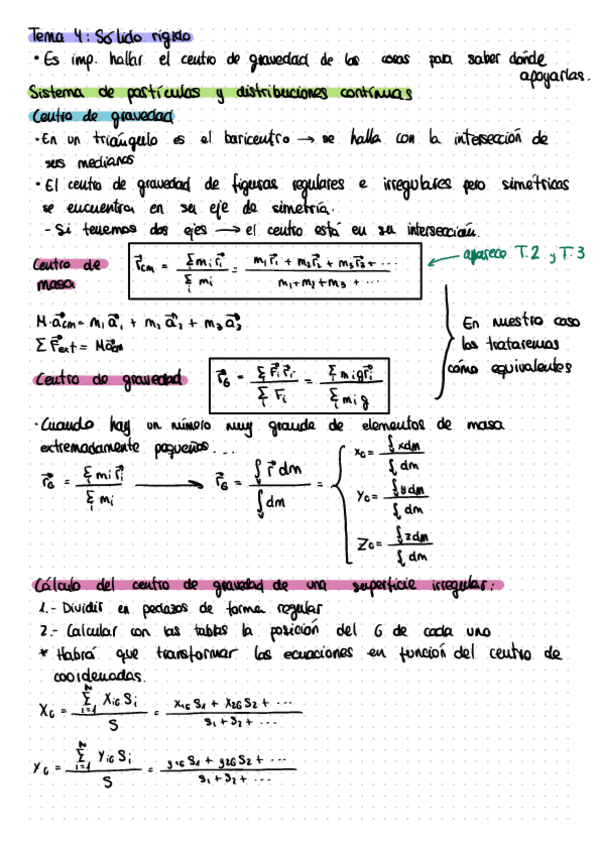 Tema 4: Sólido rígido
• Es imp. hallar el centro de gravedad de las cosas para saber dónde
apoyarlas.
Sistema de partículas y distribuciones continuas
Centro de gravedad
• En un triángulo es el baricentro → se halla con la intersección de
sus medianas
• El centro de gravedad de figuras regulares e irregulares pero simétricas
se encuentra en su eje de simetría.
- Si tenemos dos ejes → el centro está en su intersección.
Centro de masa r⃗cm = Σi mi r⃗i / Σi mi = (m1 r⃗1 + m2 r⃗2 + m3 r⃗3 + ...) / (m1 + m2 + m3 + ...) ← aparece T.2 y T.3
M·a⃗cm = m1 a⃗1 + m2 a⃗2 + m3 a⃗3
Σ F⃗ext = M a⃗cm
En nuestro caso
los trataremos
como equivalentes
Centro de gravedad r⃗G = Σi Fi r⃗i / Σi Fi = Σi mi g r⃗i / Σi mi g
• Cuando hay un número muy grande de elementos de masa
extremadamente pequeños...
r⃗G = Σi mi r⃗i / Σi mi → r⃗G = ∫v r⃗ dm / ∫v dm =
xG = ∫v x dm / ∫v dm
YG = ∫v y dm / ∫v dm
ZG = ∫v z dm / ∫v dm
Cálculo del centro de gravedad de una superficie irregular:
1.- Dividir en pedazos de forma regular
2.- Calcular con las tablas la posición del G de cada uno
* Habrá que transformar las ecuaciones en función del centro de
coordenadas.
XG = Σ(i=1, N) XiG Si / S = (X1G S1 + X2G S2 + ...) / (S1 + S2 + ...)
YG = Σ(i=1, N) YiG Si / S = (y1G S1 + y2G S2 + ...) / (S1 + S2 + ...)